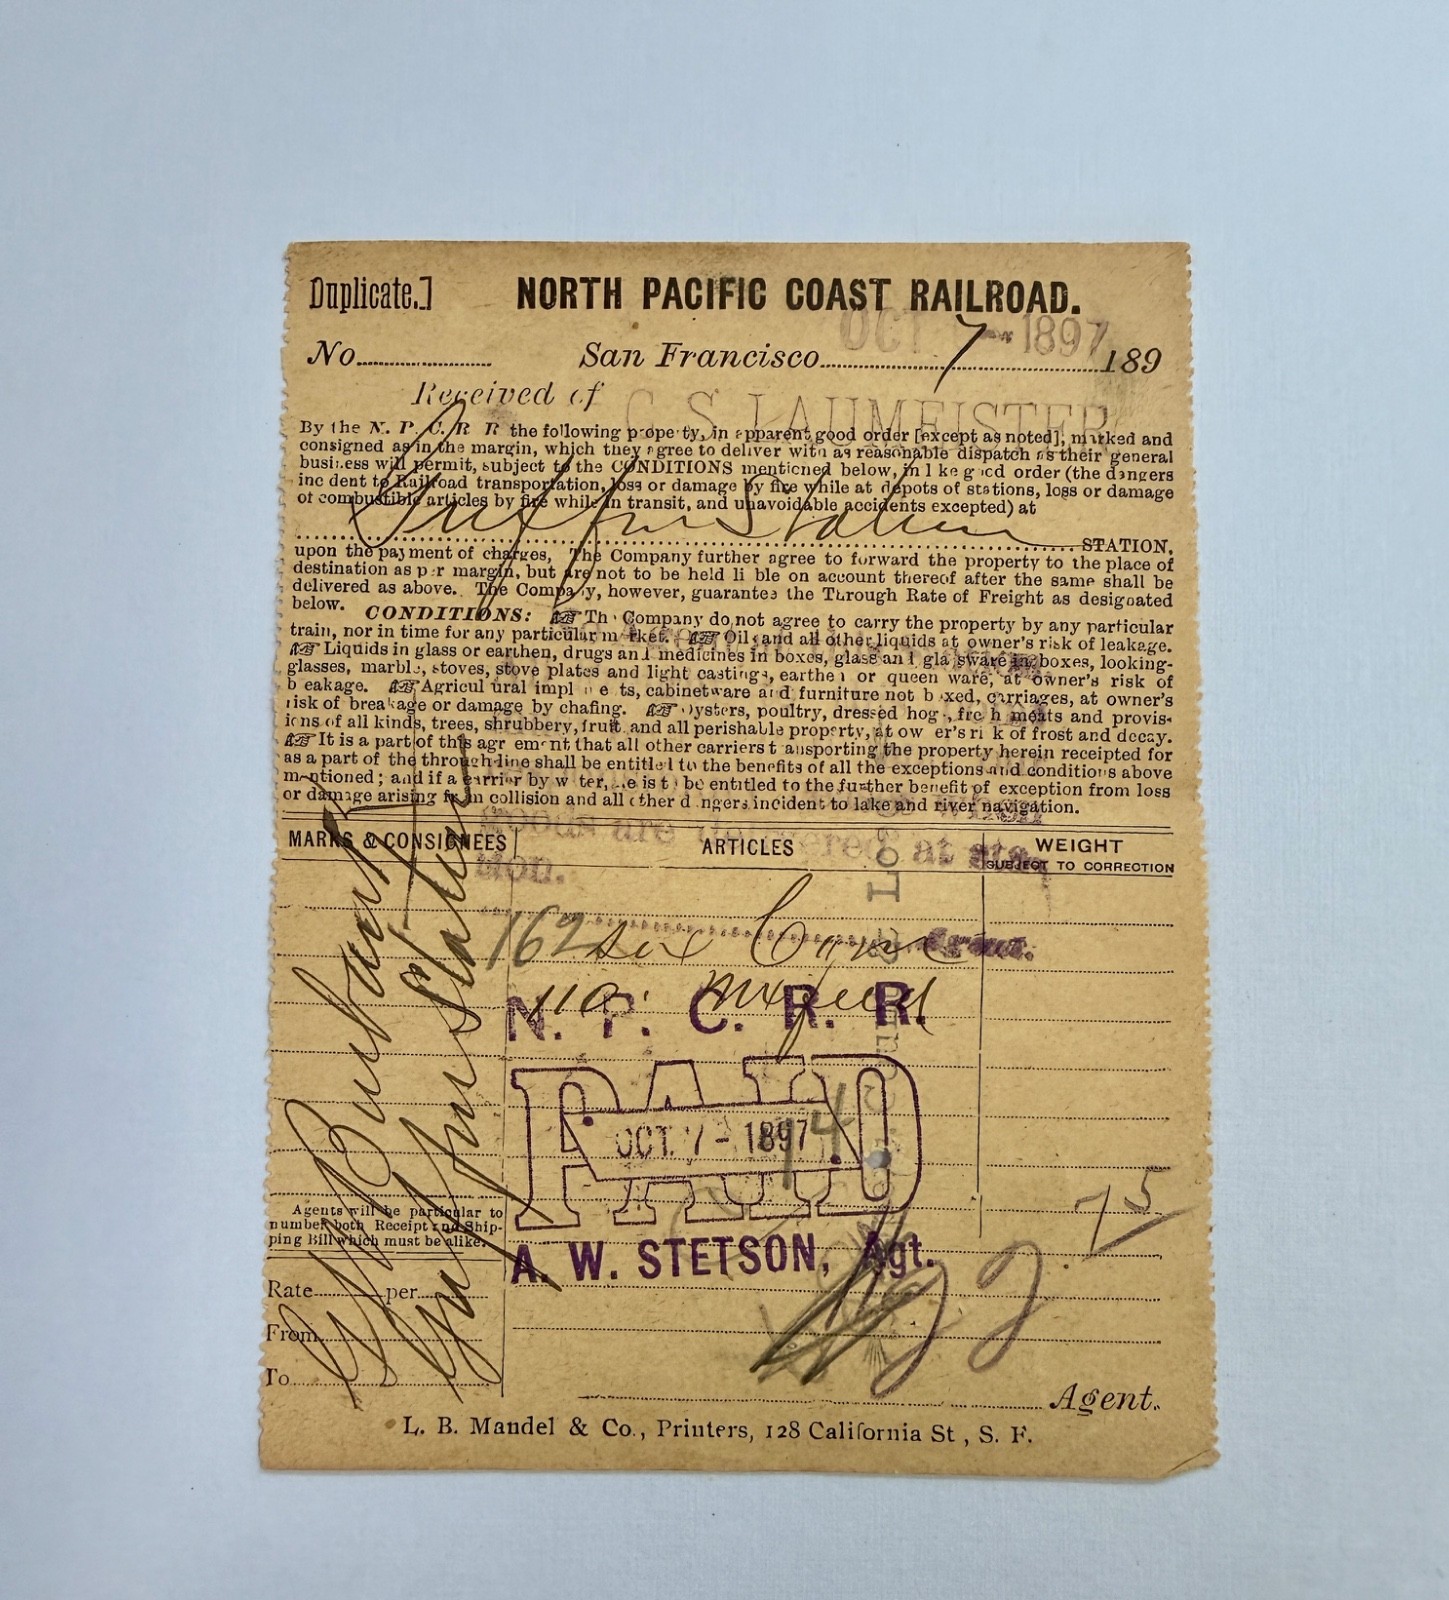 Duplicate.]
NORTH PACIFIC COAST RAILROAD.
OCT 7 - 1897
No. San Francisco 189
Received of C. S. LAUMEISTER
By the N. P. C. R R the following property, in apparent good order [except as noted], marked and
consigned as in the margin, which they agree to deliver with as reasonable dispatch as their general
business will permit, subject to the CONDITIONS mentioned below, in like good order (the dangers
incident to Railroad transportation, loss or damage by fire while at depots of stations, loss or damage
of combustible articles by fire while in transit, and unavoidable accidents excepted) at
Station
STATION,
upon the payment of charges, The Company further agree to forward the property to the place of
destination as per margin, but are not to be held liable on account thereof after the same shall be
delivered as above. The Company, however, guarantee the Through Rate of Freight as designated
below. CONDITIONS: The Company do not agree to carry the property by any particular
train, nor in time for any particular market. Oils and all other liquids at owner's risk of leakage.
Liquids in glass or earthen, drugs and medicines in boxes, glass and glassware in boxes, looking-
glasses, marble, stoves, stove plates and light castings, earthen or queen ware, at owner's risk of
breakage. Agricultural implements, cabinetware and furniture not boxed, carriages, at owner's
risk of breakage or damage by chafing. Oysters, poultry, dressed hogs, fresh meats and provis-
ions of all kinds, trees, shrubbery, fruit and all perishable property, at owner's risk of frost and decay.
It is a part of this agreement that all other carriers transporting the property herein receipted for
as a part of the through line shall be entitled to the benefits of all the exceptions and conditions above
mentioned; and if a carrier by water, he is to be entitled to the further benefit of exception from loss
or damage arising from collision and all other dangers incident to lake and river navigation.
goods are delivered at sta
tion.
MARKS & CONSIGNEES ARTICLES WEIGHT
SUBJECT TO CORRECTION
162 sx
110 feed
N. P. C. R. R.
PAID
OCT. 7 - 1897
14
75
A. W. STETSON, Agt.
Burbank
Station
Agents will be particular to
number both Receipt and Ship-
ping Bill which must be alike.
Rate per
From
To
Agent.
L. B. Mandel & Co., Printers, 128 California St, S. F.